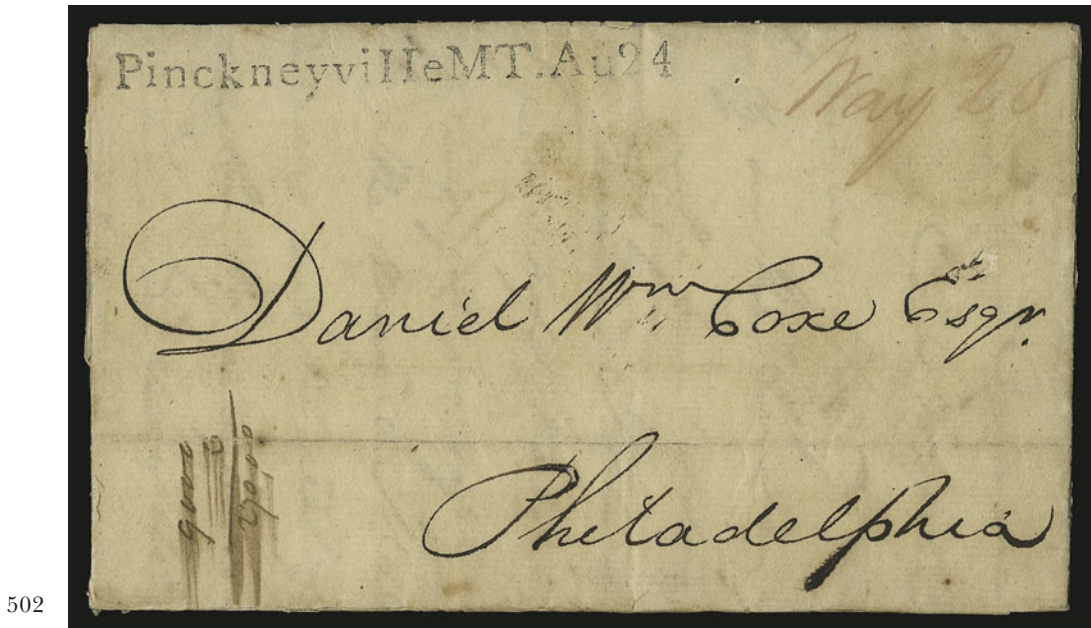 PinckneyvilleMT.Au24
Way 20
Daniel Wm Coxe Esqr.
Philadelphia
502